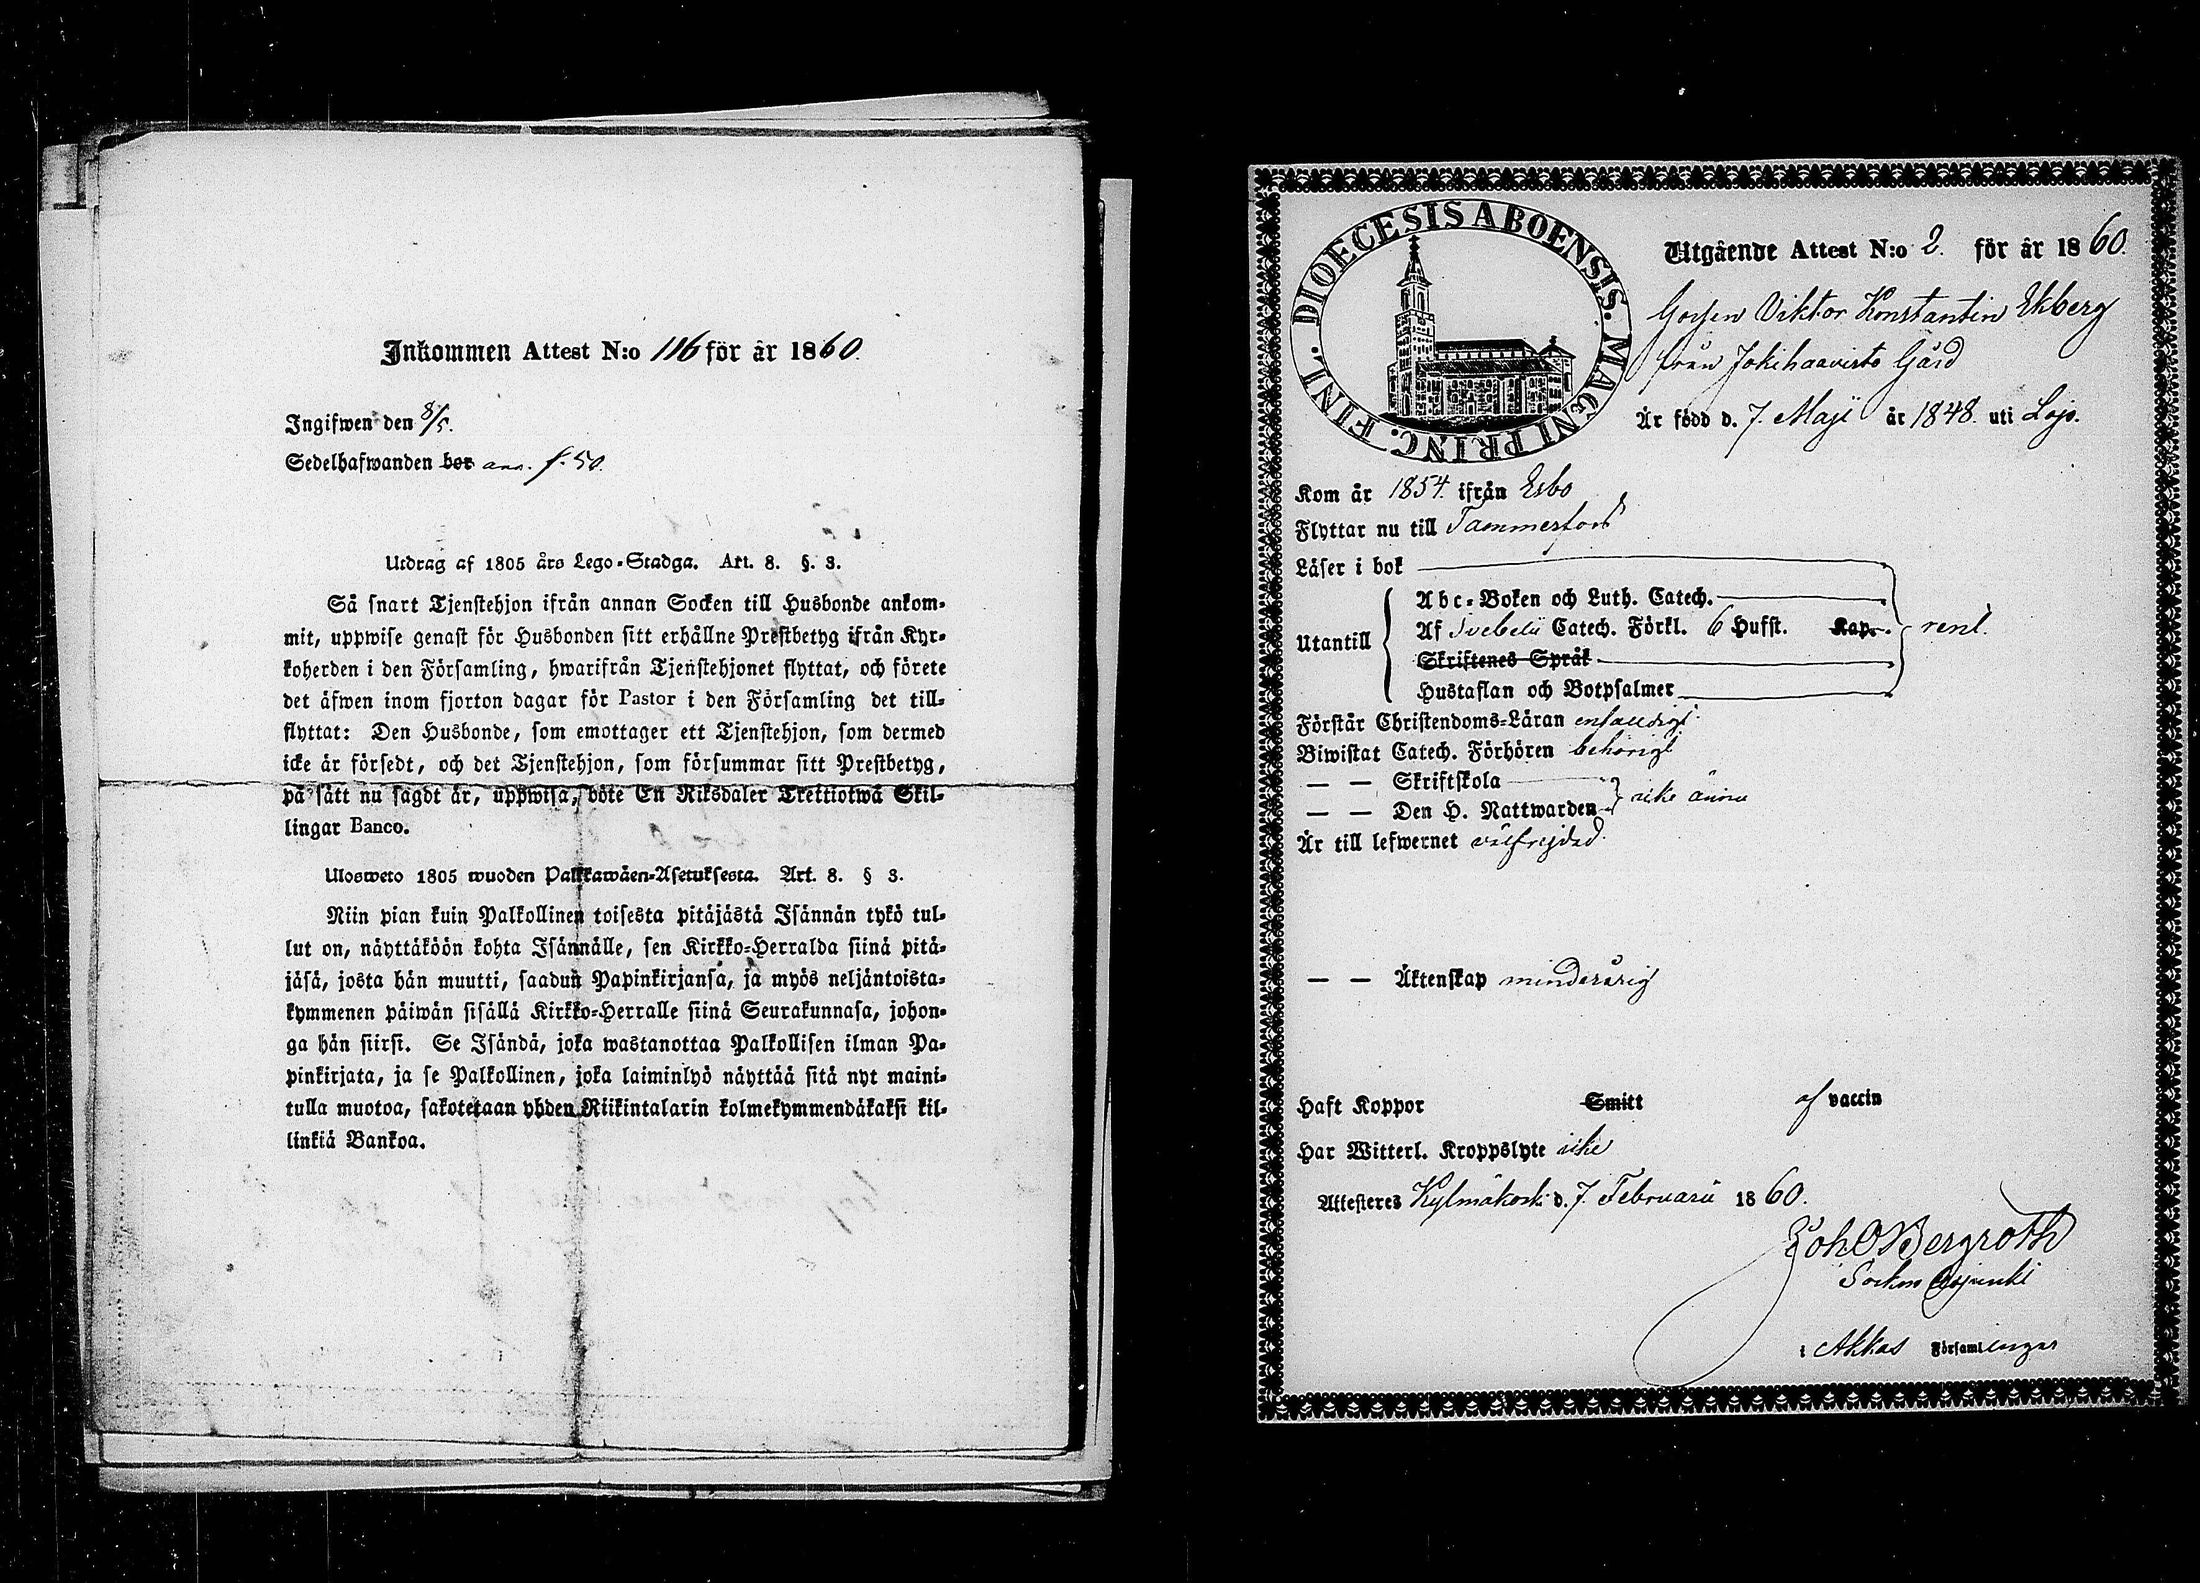 Inkommen Attest N:o 116 för år 1860.
Ingifwen den 8/5.
Sedelhafwanden bor ann. f. 50.
Utdrag af 1805 års Lego-Stadga. Art. 8. §. 3.
Så snart Tjenstehjon ifrån annan Socken till Husbonde ankom-
mit, uppwise genast för Husbonden sitt erhållne Prestbetyg ifrån Kyr-
koherden i den Församling, hwarifrån Tjenstehjonet flyttat, och förete
det äfwen inom fjorton dagar för Pastor i den Församling det till-
flyttat: Den Husbonde, som emottager ett Tjenstehjon, som dermed
icke är försedt, och det Tjenstehjon, som försummar sitt Prestbetyg,
på sätt nu sagdt är, uppwisa, böte En Riksdaler Trettiotwå Skil-
lingar Banco.
Ulosweto 1805 wuoden Palkkawäen-Asetuksesta. Art. 8. § 3.
Niin pian kuin Palkollinen toisesta pitäjästä Isännän tykö tul-
lut on, näyttäköön kohta Isännälle, sen Kirkko-Herralda siinä pitä-
jäsä, josta hän muutti, saadun Papinkirjansa, ja myös neljäntoista-
kymmenen päiwän sisällä Kirkko-Herralle siinä Seurakunnasa, johon-
ga hän siirsi. Se Isändä, joka wastanottaa Palkollisen ilman Pa-
pinkirjata, ja se Palkollinen, joka laiminlyö näyttää sitä nyt maini-
tulla muotoa, sakotetaan yhden Riikintalarin kolmekymmendäkaksi kil-
linkiä Bankoa.
DIOECESIS ABOENSIS. MAGNI PRINC. FINL.
Utgående Attest N:o 2. för år 1860.
Gossen Viktor Konstantin Ekberg
från Jokihaavisto Gård
Är född d. 7. Maji år 1848. uti Lojo.
Kom år 1854. ifrån Esbo
Flyttar nu till Tammerfors
Läser i bok
Abc-Boken och Luth. Catech.
Utantill Af Svebelii Catech. Förkl. 6 Hufst. Kap. rent.
Skriftenes Språk
Hustaflan och Botpsalmer
Förstår Christendoms-Läran enfaldigt.
Biwistat Catech. Förhören behörigt
— — Skriftskola
— — Den H. Nattwarden icke ännu
Är till lefwernet välfrejdad.
— — Äktenskap minderårig
Haft Koppor Smitt af vaccin
Har Witterl. Kroppslyte icke
Attesteres Kylmäkoski d. 7. Februarii 1860.
Joh O Bergroth
Socken Adjunkt
i Akkas Församlingar